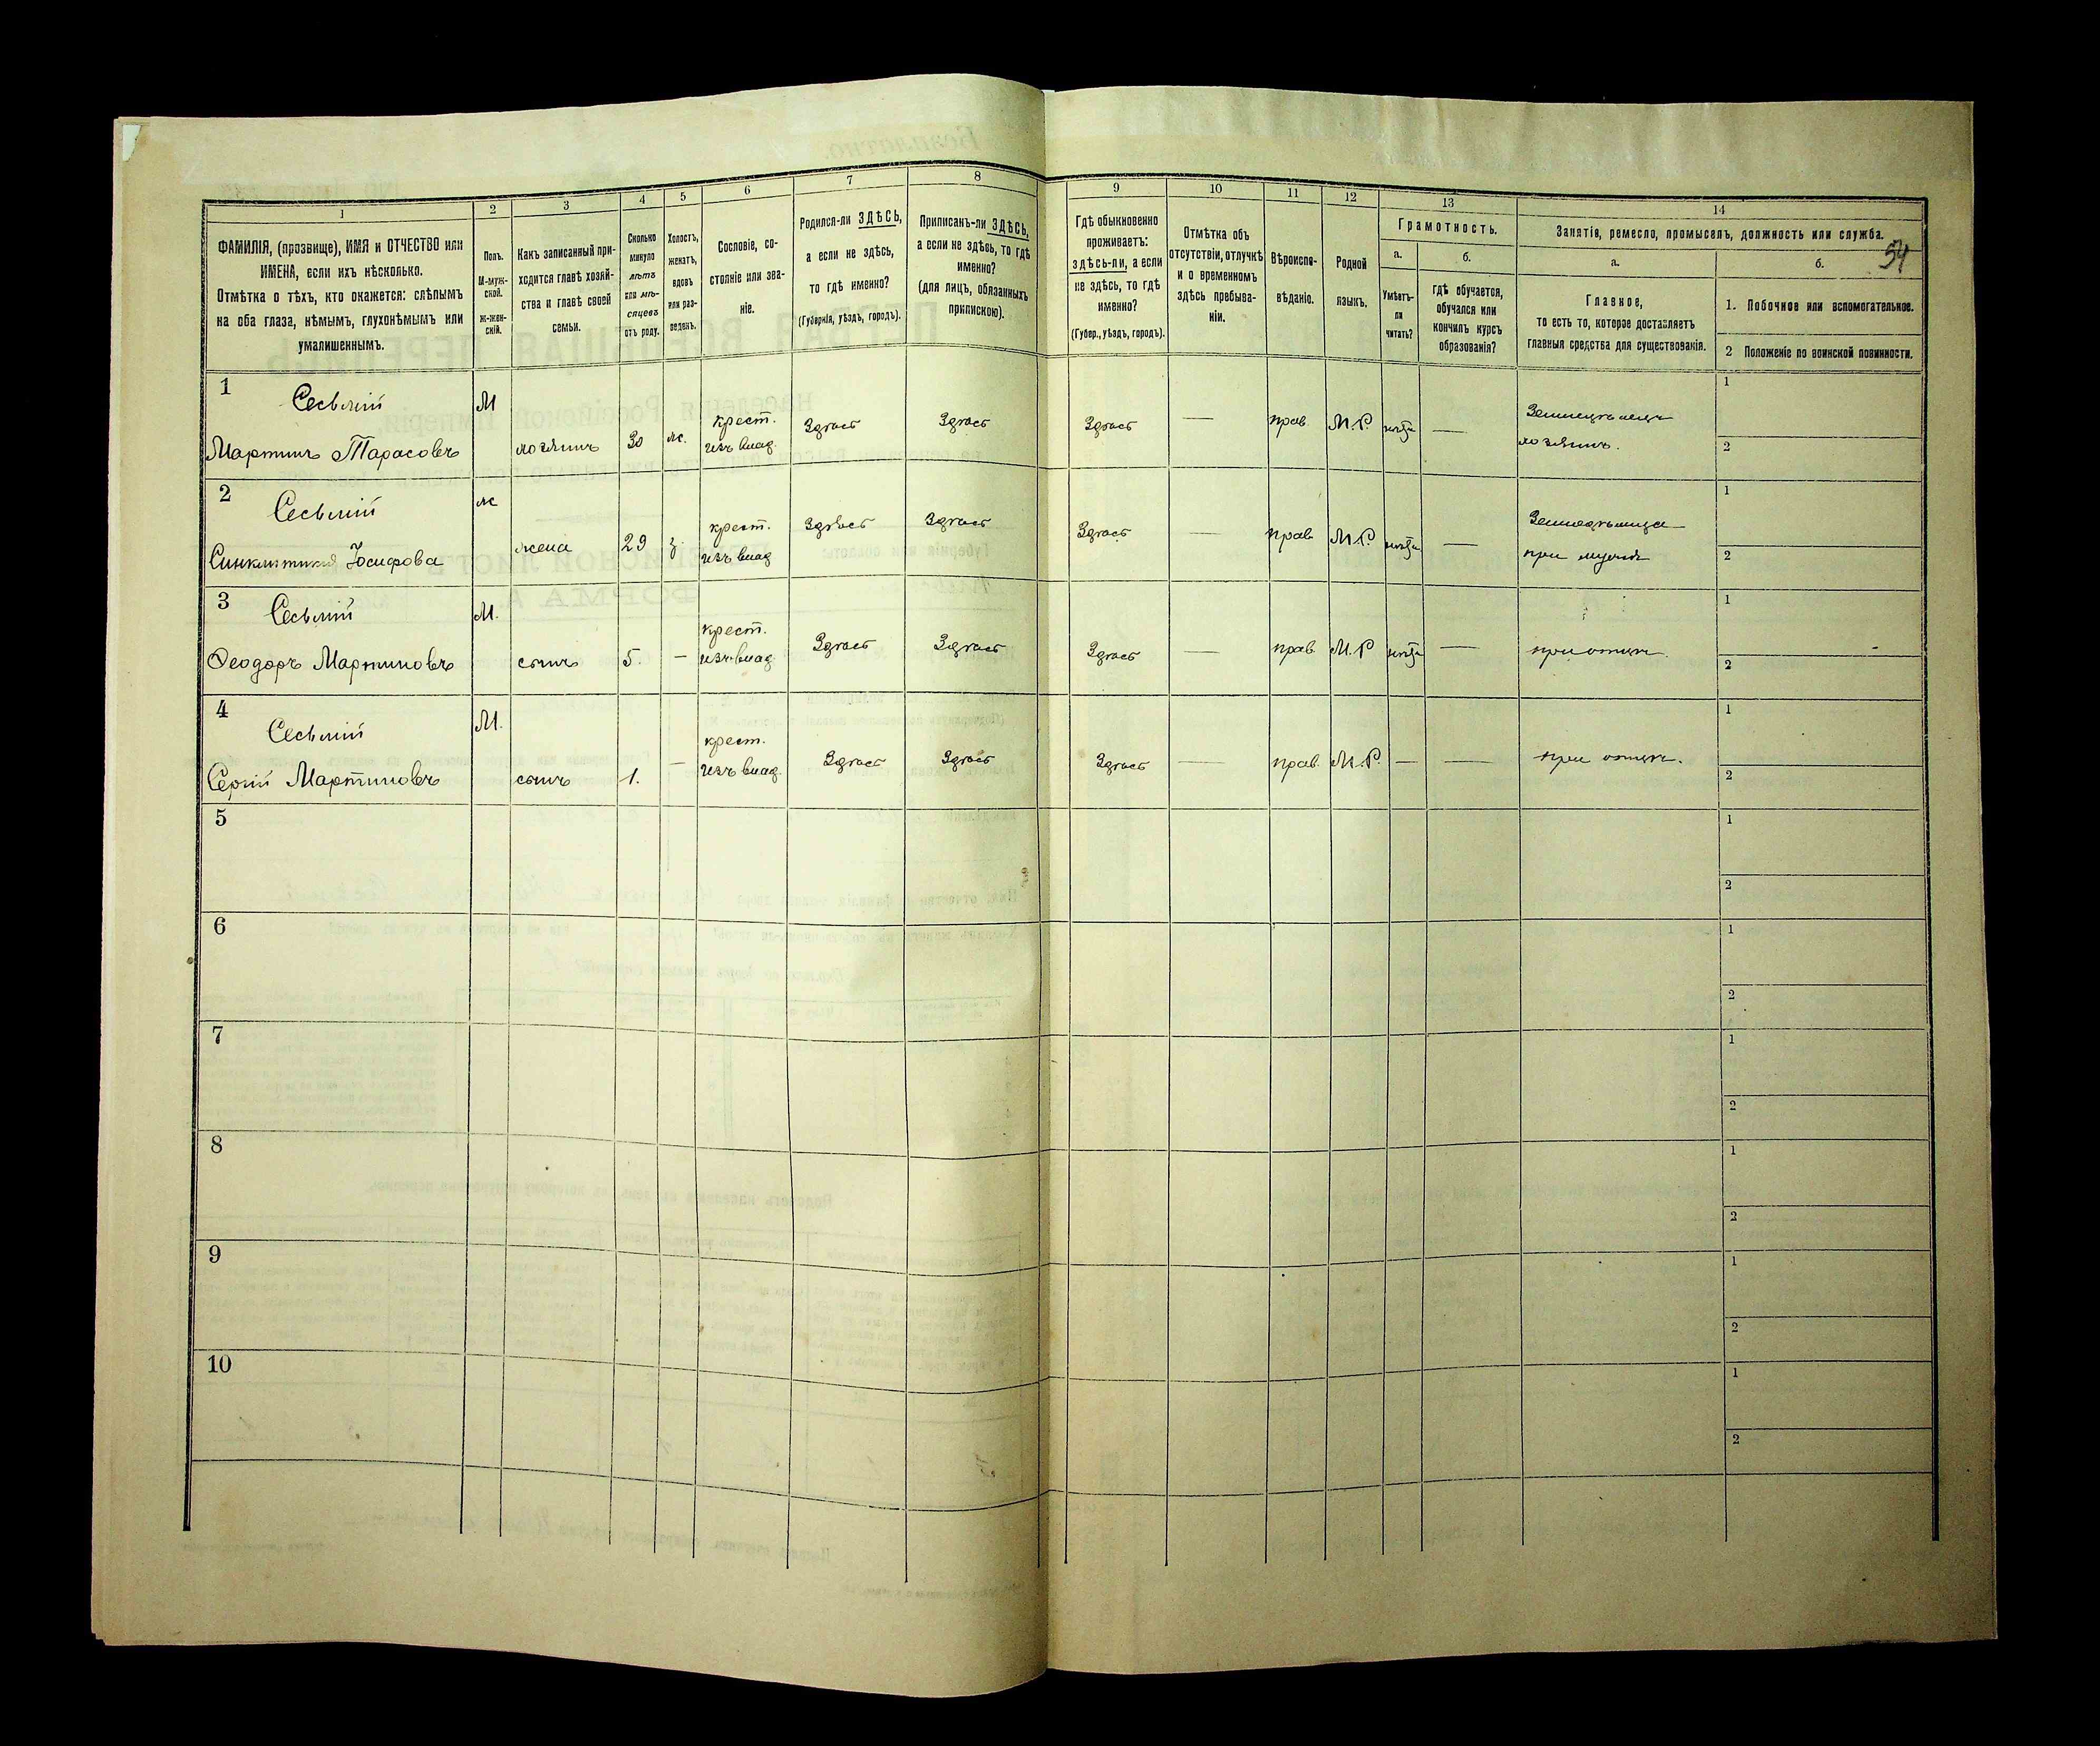 1
2
3
4
5
6
7
8
9
10
11
12
13
14
ФАМИЛІЯ, (прозвище), ИМЯ и ОТЧЕСТВО или
ИМЕНА, если ихъ нѣсколько.
Отмѣтка о тѣхъ, кто окажется: слѣпымъ
на оба глаза, нѣмымъ, глухонѣмымъ или
умалишеннымъ.
Полъ.
М-муж-
ской.
Ж-жен-
скій.
Какъ записанный при-
ходится главѣ хозяй-
ства и главѣ своей
семьи.
Сколько
минуло
лѣтъ
или мѣ-
сяцевъ
отъ роду.
Холостъ,
женатъ,
вдовъ
или раз-
веденъ.
Сословіе, со-
стояніе или зва-
ніе.
Родился-ли ЗДѢСЬ,
а если не здѣсь,
то гдѣ именно?
(Губернія, уѣздъ, городъ).
Приписанъ-ли ЗДѢСЬ,
а если не здѣсь, то гдѣ
именно?
(для лицъ, обязанныхъ
припискою).
Гдѣ обыкновенно
проживаетъ:
здѣсь-ли, а если
не здѣсь, то гдѣ
именно?
(Губер., уѣздъ, городъ).
Отмѣтка объ
отсутствіи, отлучкѣ
и о временномъ
здѣсь пребыва-
ніи.
Вѣроиспо-
вѣданіе.
Родной
языкъ.
Грамотность.
а.
Умѣетъ-
ли
читать?
б.
гдѣ обучается,
обучался или
кончилъ курсъ
образованія?
Занятія, ремесло, промыселъ, должность или служба.
54
а.
Главное,
то есть то, которое доставляетъ
главныя средства для существованія.
б.
1. Побочное или вспомогательное.
2 Положеніе по воинской повинности.
1
Мартинъ Тарасовъ
М
хозяинъ
30
ж.
крест.
изъ влад.
Здѣсь
Здѣсь
Здѣсь
—
прав.
М.Р.
нѣтъ
—
хозяинъ.
1
2
2
Іосифова
ж
жена
29
з.
крест.
изъ влад
Здѣсь
Здѣсь
Здѣсь
—
прав.
М.Р.
нѣтъ
—
при мужѣ
1
2
3
Ѳеодоръ Мартиновъ
М.
сынъ
5.
—
крест.
изъ влад
Здѣсь
Здѣсь
Здѣсь
—
прав.
М.Р
нѣтъ
—
при отцѣ.
1
2
4
Сергій Мартиновъ
М.
сынъ
1.
—
крест.
изъ влад.
Здѣсь
Здѣсь
Здѣсь
—
прав.
М.Р.
—
—
при отцѣ.
1
2
5
1
2
6
1
2
7
1
2
8
1
2
9
1
2
10
1
2